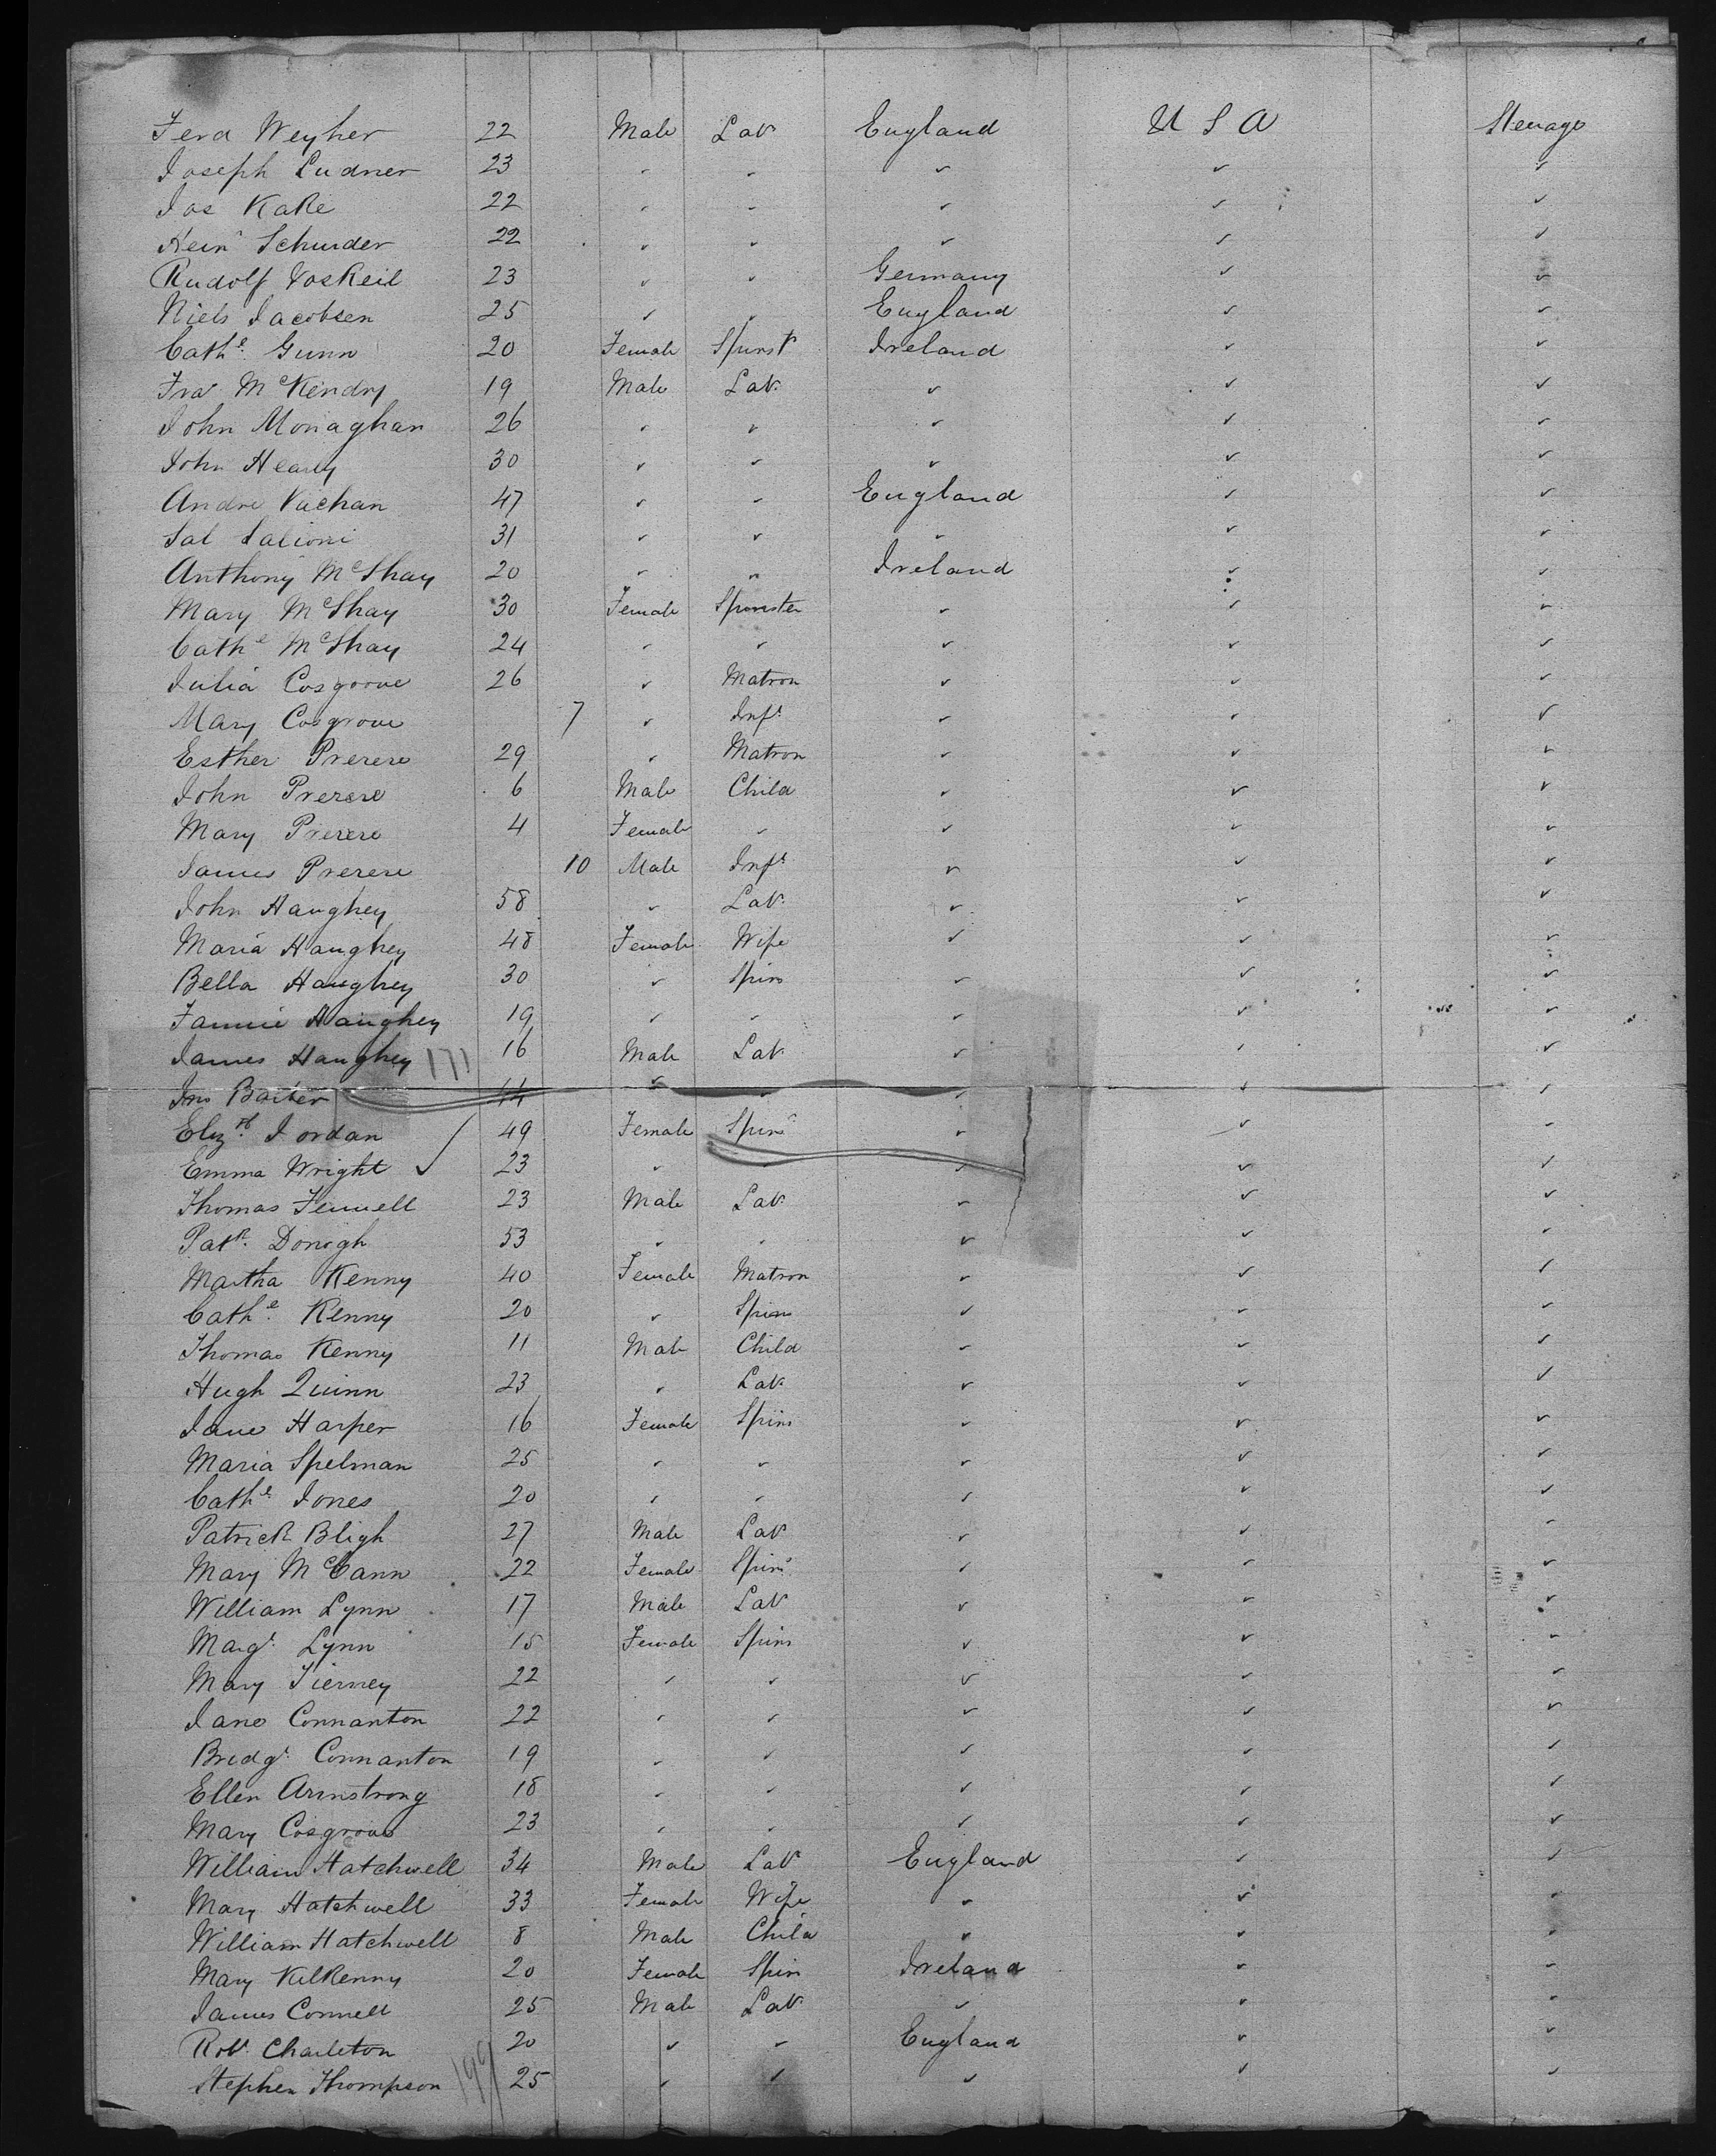 Ferd Weyher 22 Male Lab England U S A Steerage
Joseph Ludner 23 " " " " "
Jos Kake 22 " " " " "
Hein Schurder 22 " " " " "
Rudolf Voskeil 23 " " Germany " "
Niels Jacobsen 25 " " England " "
Cathe. Gunn 20 Female Spinstr Ireland " "
Fras McKendry 19 Male Lab " " "
John Monaghan 26 " " " " "
John Heany 30 " " " " "
Andre Vachan 47 " " England " "
Sal Salioni 31 " " " " "
Anthony McShay 20 " " Ireland " "
Mary McShay 30 Female Spinster " " "
Cathe McShay 24 " " " " "
Julia Cosgrove 26 " Matron " " "
Mary Cosgrove 7 " Inft " " "
Esther Prerere 29 " Matron " " "
John Prerere 6 Male Child " " "
Mary Prerere 4 Female " " " "
James Prerere 10 Male Inft " " "
John Haughey 58 " Lab " " "
Maria Haughey 48 Female Wife " " "
Bella Haughey 30 " Spins " " "
Fannie Haughey 19 " " " " "
James Haughey 171 16 Male Lab " " "
Jno Barber 44 " " " " "
Elizth. Jordan 49 Female Spins " " "
Emma Wright ✓ 23 " " " " "
Thomas Fennell 23 Male Lab " " "
Patk. Donogh 53 " " " " "
Martha Kenny 40 Female Matron " " "
Cathe. Kenny 20 " Spins " " "
Thomas Kenny 11 Male Child " " "
Hugh Quinn 23 " Lab " " "
Jane Harper 16 Female Spins " " "
Maria Spelman 25 " " " " "
Cathe. Jones 20 " " " " "
Patrick Bligh 27 Male Lab " " "
Mary McCann 22 Female Spins " " "
William Lynn 17 Male Lab " " "
Margt. Lynn 15 Female Spins " " "
Mary Tierney 22 " " " " "
Jane Connanton 22 " " " " "
Bridgt. Connanton 19 " " " " "
Ellen Armstrong 18 " " " " "
Mary Cosgrove 23 " " " " "
William Hatchwell 34 Male Lab England " "
Mary Hatchwell 33 Female Wife " " "
William Hatchwell 8 Male Child " " "
Mary Kilkenny 20 Female Spin Ireland " "
James Connell 25 Male Lab " " "
Robt. Charleton 20 " " England " "
Stephen Thompson 199 25 " " " " "